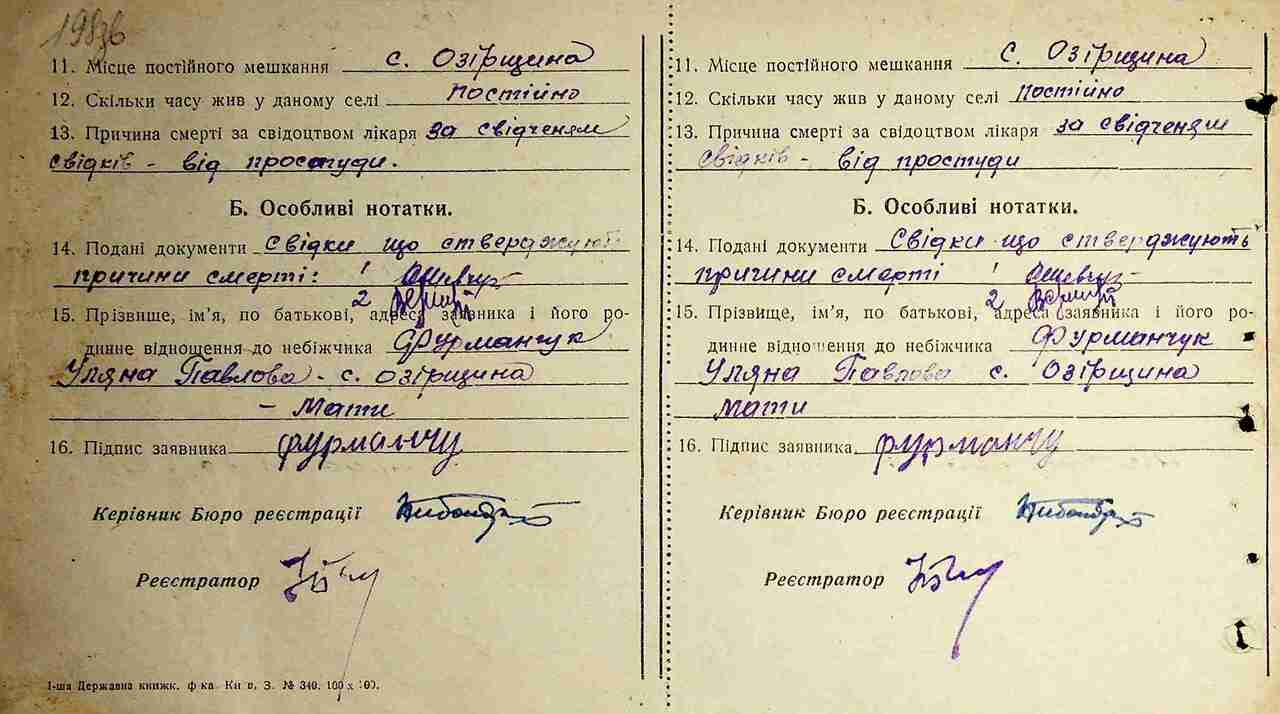 198зв
11. Місце постійного мешкання с. Озірщина
12. Скільки часу жив у даному селі постійно
13. Причина смерті за свідоцтвом лікаря за свідченям
свідків - від простуди.
Б. Особливі нотатки.
14. Подані документи Свідки що стверджують
причини смерті: 1
2
15. Прізвише, ім’я, по батькові, адреса заявника і його ро-
динне відношення до небіжчика Фурманчук
Уляна Павлова - с. озірщина
- Мати
16. Підпис заявника фурманчу
Керівник Бюро реєстрації
Реєстратор
1-ша Державна книжк. ф-ка. Київ, З. № 340. 100 х 100.
11. Місце постійного мешкання с. Озірщина
12. Скільки часу жив у даному селі постійно
13. Причина смерті за свідоцтвом лікаря за свідченям
свідків - від простуди
Б. Особливі нотатки.
14. Подані документи Свідки що стверджують
причини смерті 1
2
15. Прізвище, ім’я, по батькові, адреса заявника і його ро-
динне відношення до небіжчика Фурманчук
Уляна Павлова с. Озірщина
мати
16. Підпис заявника фурманчу
Керівник Бюро реєстрації
Реєстратор